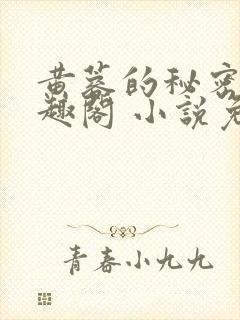 黄蓉的秘密
趣閣 小說免
青春小九九